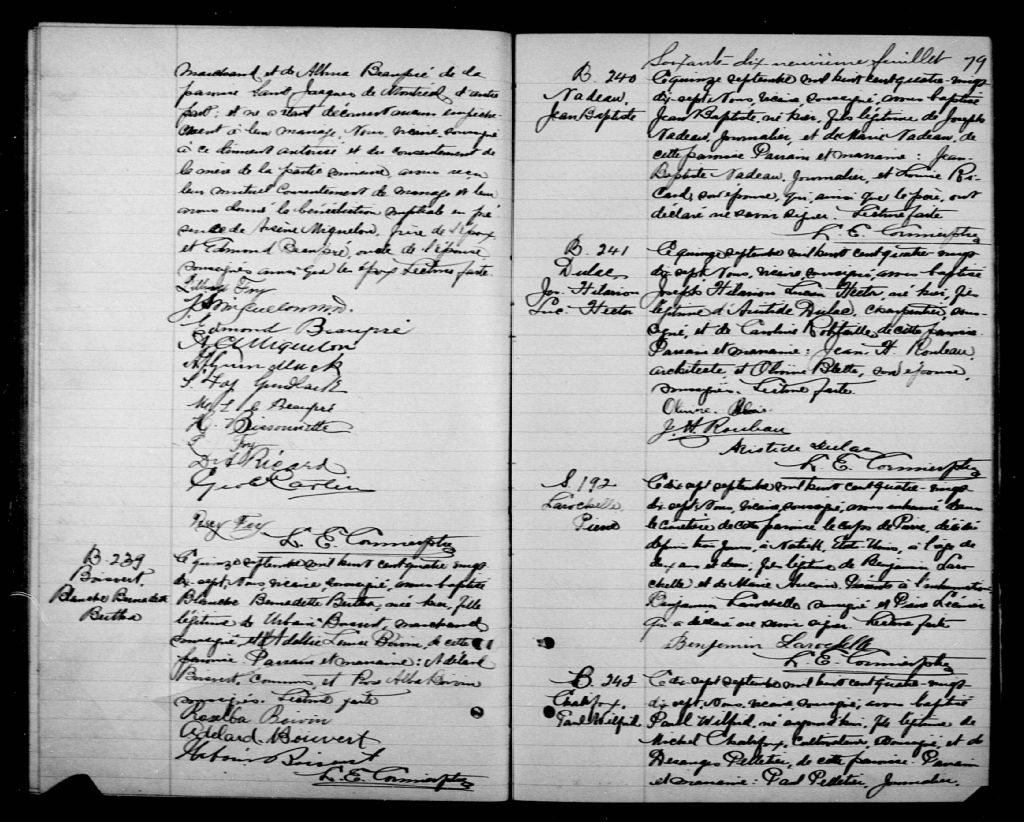 marchand et de Albina Beaupré de la
paroisse Saint Jacques de Montréal d'autre
part; et ne s'étant découvert aucun empêche-
ment à leur mariage, Nous, vicaire, soussigné
à ce dûment autorisé et du consentement de
la mère de la partie mineure avons reçu
leur mutuel consentement de mariage et leur
avons donné la bénédiction nuptiale en pré
sence de Arsène Miquelon, frère de l'époux
et Edmond Beaupré, oncle de l'épouse,
soussignés ainsi que les époux. Lecture faite.
Foy
J. S. Miquelon M.D.
Edmond Beaupré
Miquelon
S. Foy
Beaupré
H. Bissonnette
Foy
D. A. Ricard
Geo. Carlin
Percy Foy
L. E. Cormier ptre
B. 239
Boisvert,
Blanche Bernadette
Bertha
Le quinze septembre mil huit cent quatre-vingt
dix-sept, Nous, vicaire, soussigné, avons baptisé
Blanche Bernadette Bertha, née hier, fille
légitime de Urbain Boisvert, marchand
soussigné, et Boivin, de cette
paroisse. Parrain et marraine: Adelard
Boisvert, commis, et Rose Alba Boivin
soussignés. Lecture faite
Rosalba Boivin
Adelard Boisvert
Urbain Boisvert
L. E. Cormier ptre
Soixante-dix neuvième feuillet 79
B. 240
Nadeau,
Jean Baptiste
Le quinze septembre mil huit cent quatre-vingt
dix-sept, Nous, vicaire, soussigné, avons baptisé
Jean Baptiste, né hier, fils légitime de Joseph
Nadeau, journalier, et de Marie Nadeau, de
cette paroisse. Parrain et marraine: Jean-
Baptiste Nadeau, journalier, et Louise Ri-
card, son épouse, qui, ainsi que le père, ont
déclaré ne savoir signer. Lecture faite
L. E. Cormier ptre
B. 241
Dulac
Jos. Hilarion
Luc. Hector
Le quinze septembre mil huit cent quatre-vingt
dix-sept, Nous, vicaire, soussigné, avons baptisé
Joseph Hilarion Lucien Hector, né hier, fils
légitime d'Aristide Dulac, charpentier, sous-
signé, et de Caroline Robitaille, de cette paroisse.
Parrain et marraine: Jean. H. Rouleau,
architecte et Olivine Blette, son épouse,
soussignés. Lecture faite.
J. H. Rouleau
Aristide Dulac
L. E. Cormier ptre
S. 192
Larochelle
Pierre
Le dix sept septembre mil huit cent quatre-vingt
dix-sept, Nous, vicaire, soussigné, avons inhumé dans
le cimetière de cette paroisse le corps de Pierre, décédé
depuis trois jours, à Natick, États-Unis, à l'âge de
deux ans et demi, fils légitime de Benjamin Laro
chelle et de Marie Aucoin. Présents à l'inhumation
Benjamin Larochelle soussigné et Pierre
qui a déclaré ne savoir signer. Lecture faite
Benjamin Larochelle
L. E. Cormier ptre
B. 242
Chalifoux,
Paul Wilfrid
Le dix sept septembre mil huit cent quatre-vingt
dix-sept, Nous, vicaire, soussigné, avons baptisé
Paul Wilfrid, né aujourd'hui, fils légitime de
Michel Chalifoux, cultivateur, soussigné, et de
Desanges Pelletier, de cette paroisse. Parrain
et marraine: Paul Pelletier, journalier,